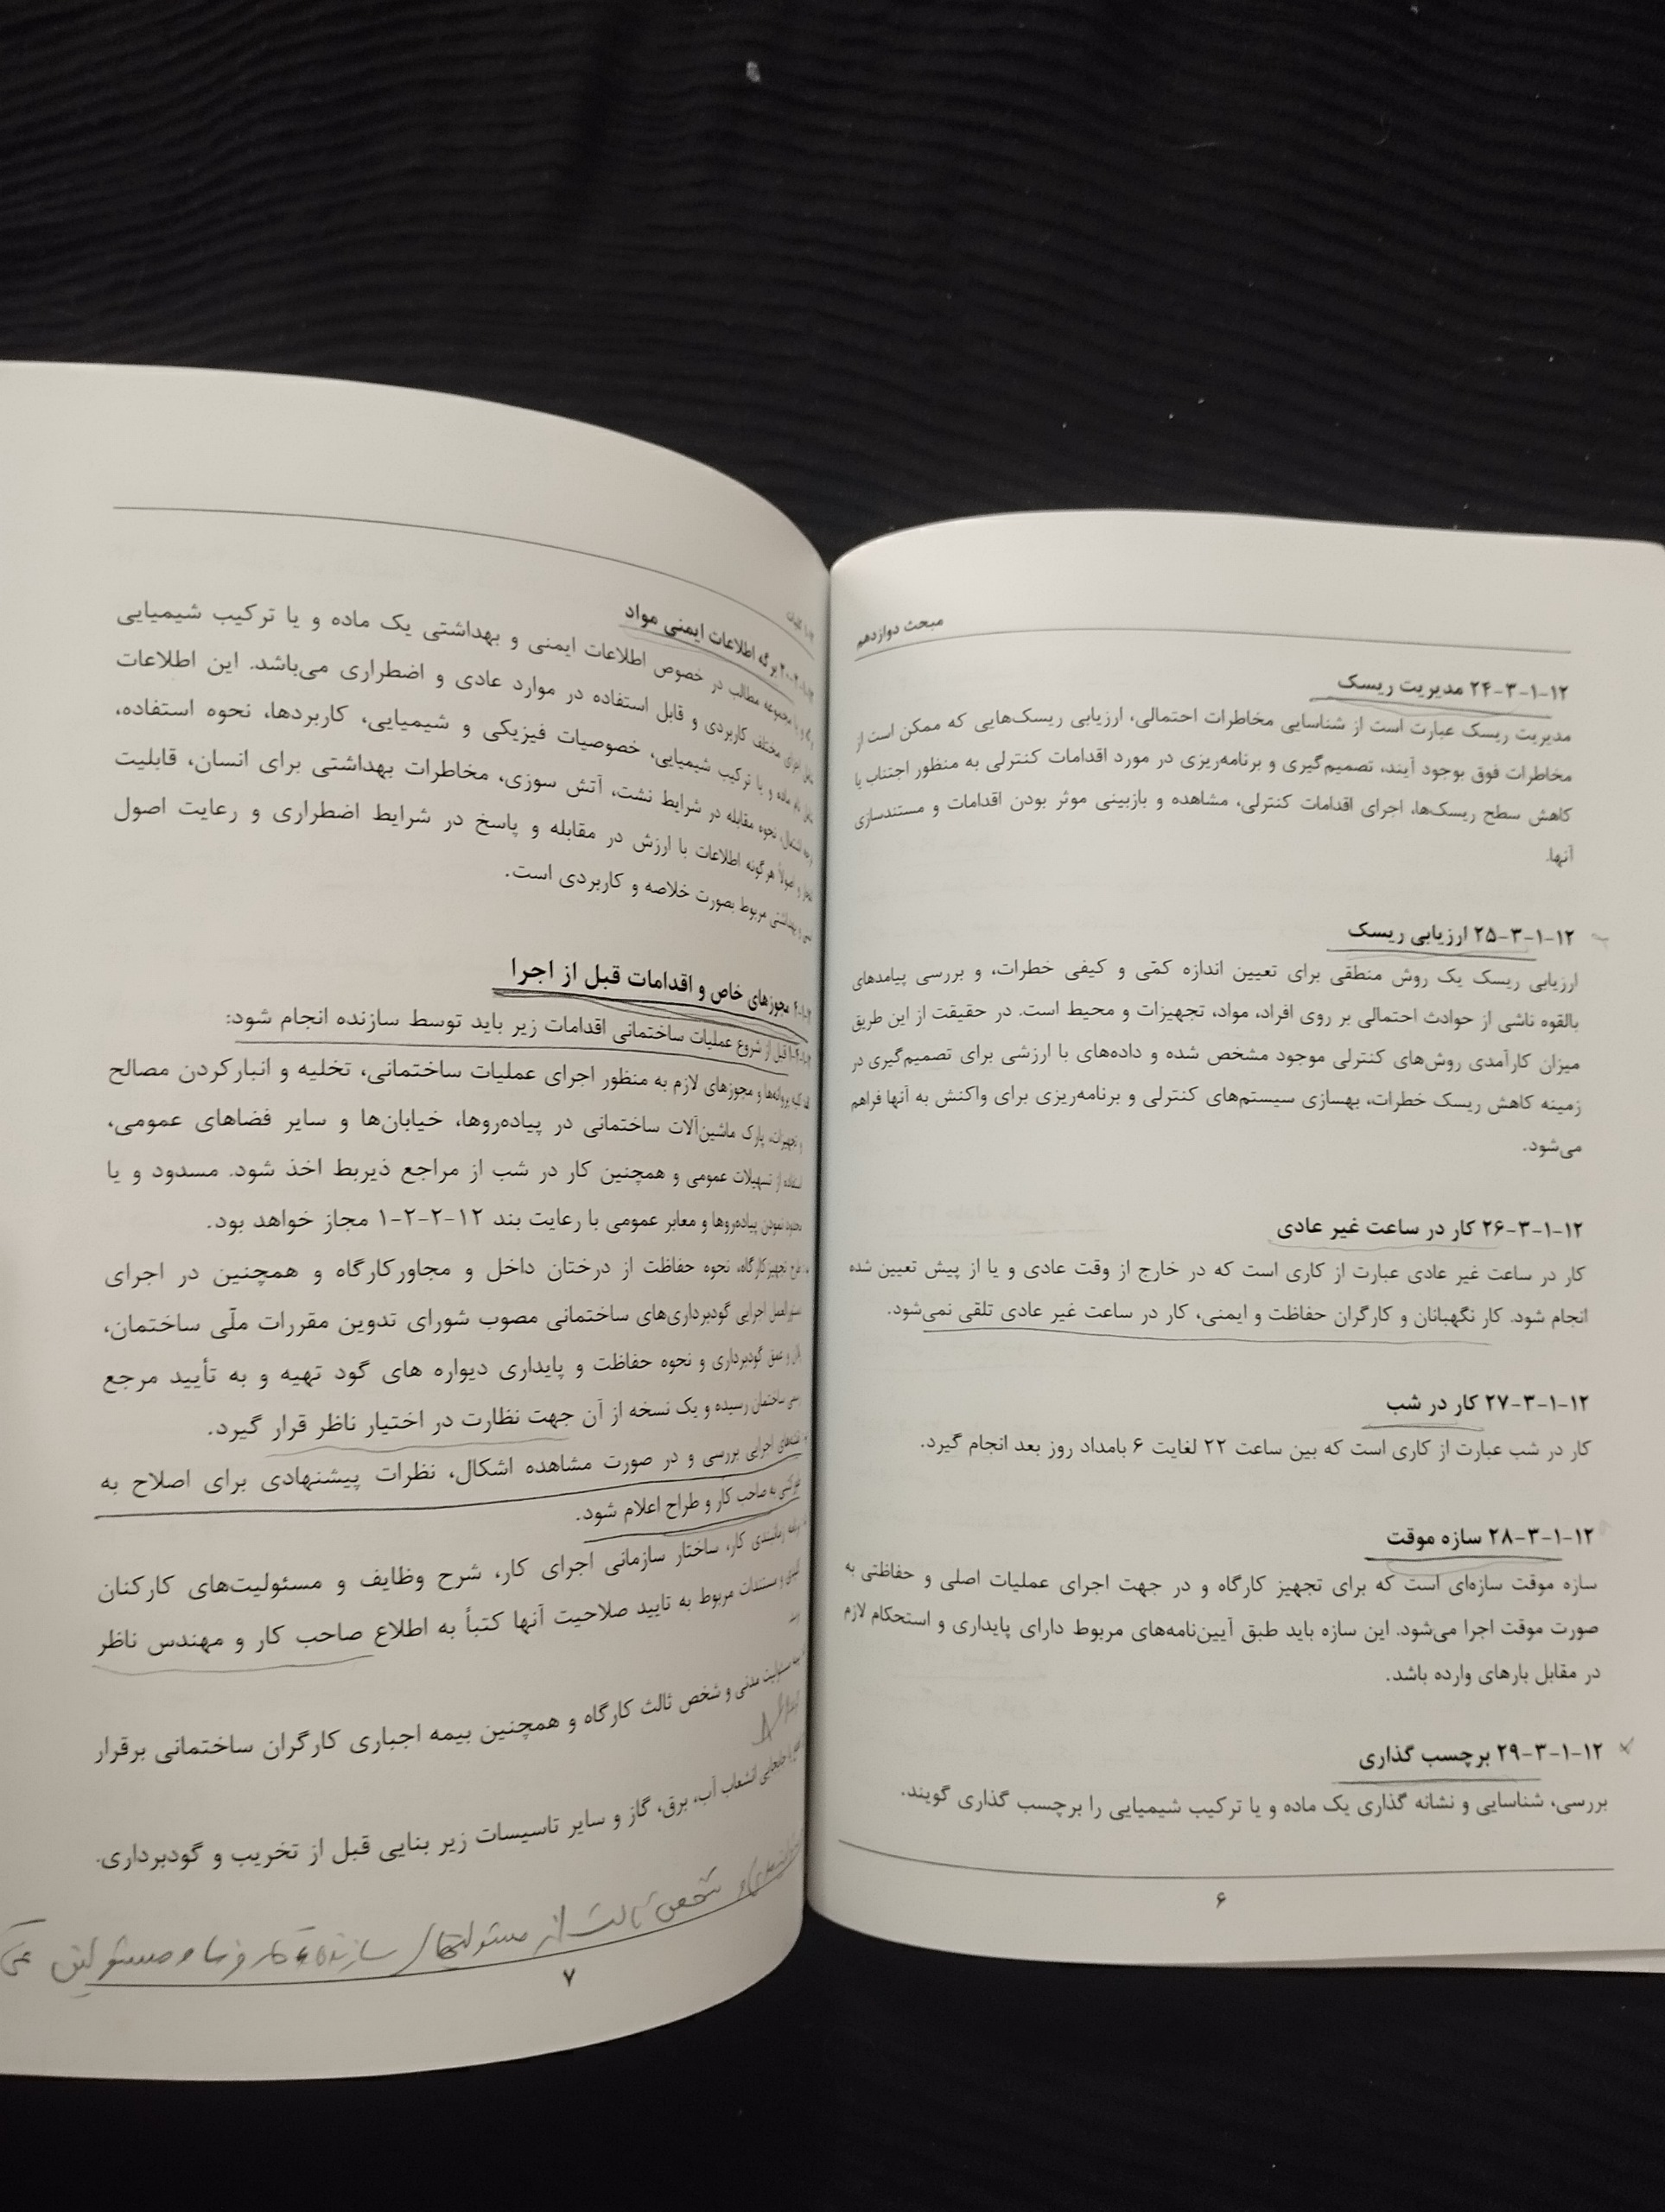 مبحث دوازدهم
۱۲-۱-۳-۲۴ مدیریت ریسک
مدیریت ریسک عبارت است از شناسایی مخاطرات احتمالی، ارزیابی ریسک‌هایی که ممکن است از
مخاطرات فوق بوجود آیند، تصمیم‌گیری و برنامه‌ریزی در مورد اقدامات کنترلی به منظور اجتناب یا
کاهش سطح ریسک‌ها، اجرای اقدامات کنترلی، مشاهده و بازبینی موثر بودن اقدامات و مستندسازی
آنها.
۱۲-۱-۳-۲۵ ارزیابی ریسک
ارزیابی ریسک یک روش منطقی برای تعیین اندازه کمّی و کیفی خطرات، و بررسی پیامدهای
بالقوه ناشی از حوادث احتمالی بر روی افراد، مواد، تجهیزات و محیط است. در حقیقت از این طریق
میزان کارآمدی روش‌های کنترلی موجود مشخص شده و داده‌های با ارزشی برای تصمیم‌گیری در
زمینه کاهش ریسک خطرات، بهسازی سیستم‌های کنترلی و برنامه‌ریزی برای واکنش به آنها فراهم
می‌شود.
۱۲-۱-۳-۲۶ کار در ساعت غیر عادی
کار در ساعت غیر عادی عبارت از کاری است که در خارج از وقت عادی و یا از پیش تعیین شده
انجام شود. کار نگهبانان و کارگران حفاظت و ایمنی، کار در ساعت غیر عادی تلقی نمی‌شود.
۱۲-۱-۳-۲۷ کار در شب
کار در شب عبارت از کاری است که بین ساعت ۲۲ لغایت ۶ بامداد روز بعد انجام گیرد.
۱۲-۱-۳-۲۸ سازه موقت
سازه موقت سازه‌ای است که برای تجهیز کارگاه و در جهت اجرای عملیات اصلی و حفاظتی به
صورت موقت اجرا می‌شود. این سازه باید طبق آیین‌نامه‌های مربوط دارای پایداری و استحکام لازم
در مقابل بارهای وارده باشد.
۱۲-۱-۳-۲۹ برچسب گذاری
بررسی، شناسایی و نشانه گذاری یک ماده و یا ترکیب شیمیایی را برچسب گذاری گویند.
۶
برگه اطلاعات ایمنی مواد
مجموعه مطالب در خصوص اطلاعات ایمنی و بهداشتی یک ماده و یا ترکیب شیمیایی
مختلف کاربردی و قابل استفاده در موارد عادی و اضطراری می‌باشد. این اطلاعات
نام ماده و یا ترکیب شیمیایی، خصوصیات فیزیکی و شیمیایی، کاربردها، نحوه استفاده،
اشتعال، نحوه مقابله در شرایط نشت، آتش سوزی، مخاطرات بهداشتی برای انسان، قابلیت
و اصولاً هرگونه اطلاعات با ارزش در مقابله و پاسخ در شرایط اضطراری و رعایت اصول
بهداشتی مربوط بصورت خلاصه و کاربردی است.
مجوزهای خاص و اقدامات قبل از اجرا
قبل از شروع عملیات ساختمانی اقدامات زیر باید توسط سازنده انجام شود:
کلیه پروانه‌ها و مجوزهای لازم به منظور اجرای عملیات ساختمانی، تخلیه و انبارکردن مصالح
و تجهیزات، پارک ماشین‌آلات ساختمانی در پیاده‌روها، خیابان‌ها و سایر فضاهای عمومی،
استفاده از تسهیلات عمومی و همچنین کار در شب از مراجع ذیربط اخذ شود. مسدود و یا
محدود نمودن پیاده‌روها و معابر عمومی با رعایت بند ۱۲-۲-۲-۱ مجاز خواهد بود.
طرح تجهیزکارگاه، نحوه حفاظت از درختان داخل و مجاورکارگاه و همچنین در اجرای
دستورالعمل اجرایی گودبرداری‌های ساختمانی مصوب شورای تدوین مقررات ملّی ساختمان،
و عمق گودبرداری و نحوه حفاظت و پایداری دیواره های گود تهیه و به تأیید مرجع
رسمی ساختمان رسیده و یک نسخه از آن جهت نظارت در اختیار ناظر قرار گیرد.
نقشه‌های اجرایی بررسی و در صورت مشاهده اشکال، نظرات پیشنهادی برای اصلاح به
طور کتبی به صاحب کار و طراح اعلام شود.
برنامه زمانبندی کار، ساختار سازمانی اجرای کار، شرح وظایف و مسئولیت‌های کارکنان
و مستندات مربوط به تایید صلاحیت آنها کتباً به اطلاع صاحب کار و مهندس ناظر
مسئولیت مدنی و شخص ثالث کارگاه و همچنین بیمه اجباری کارگران ساختمانی برقرار
جابجایی انشعاب آب، برق، گاز و سایر تاسیسات زیر بنایی قبل از تخریب و گودبرداری.
شخص ثالث از مسئولیتهای سازنده
۷